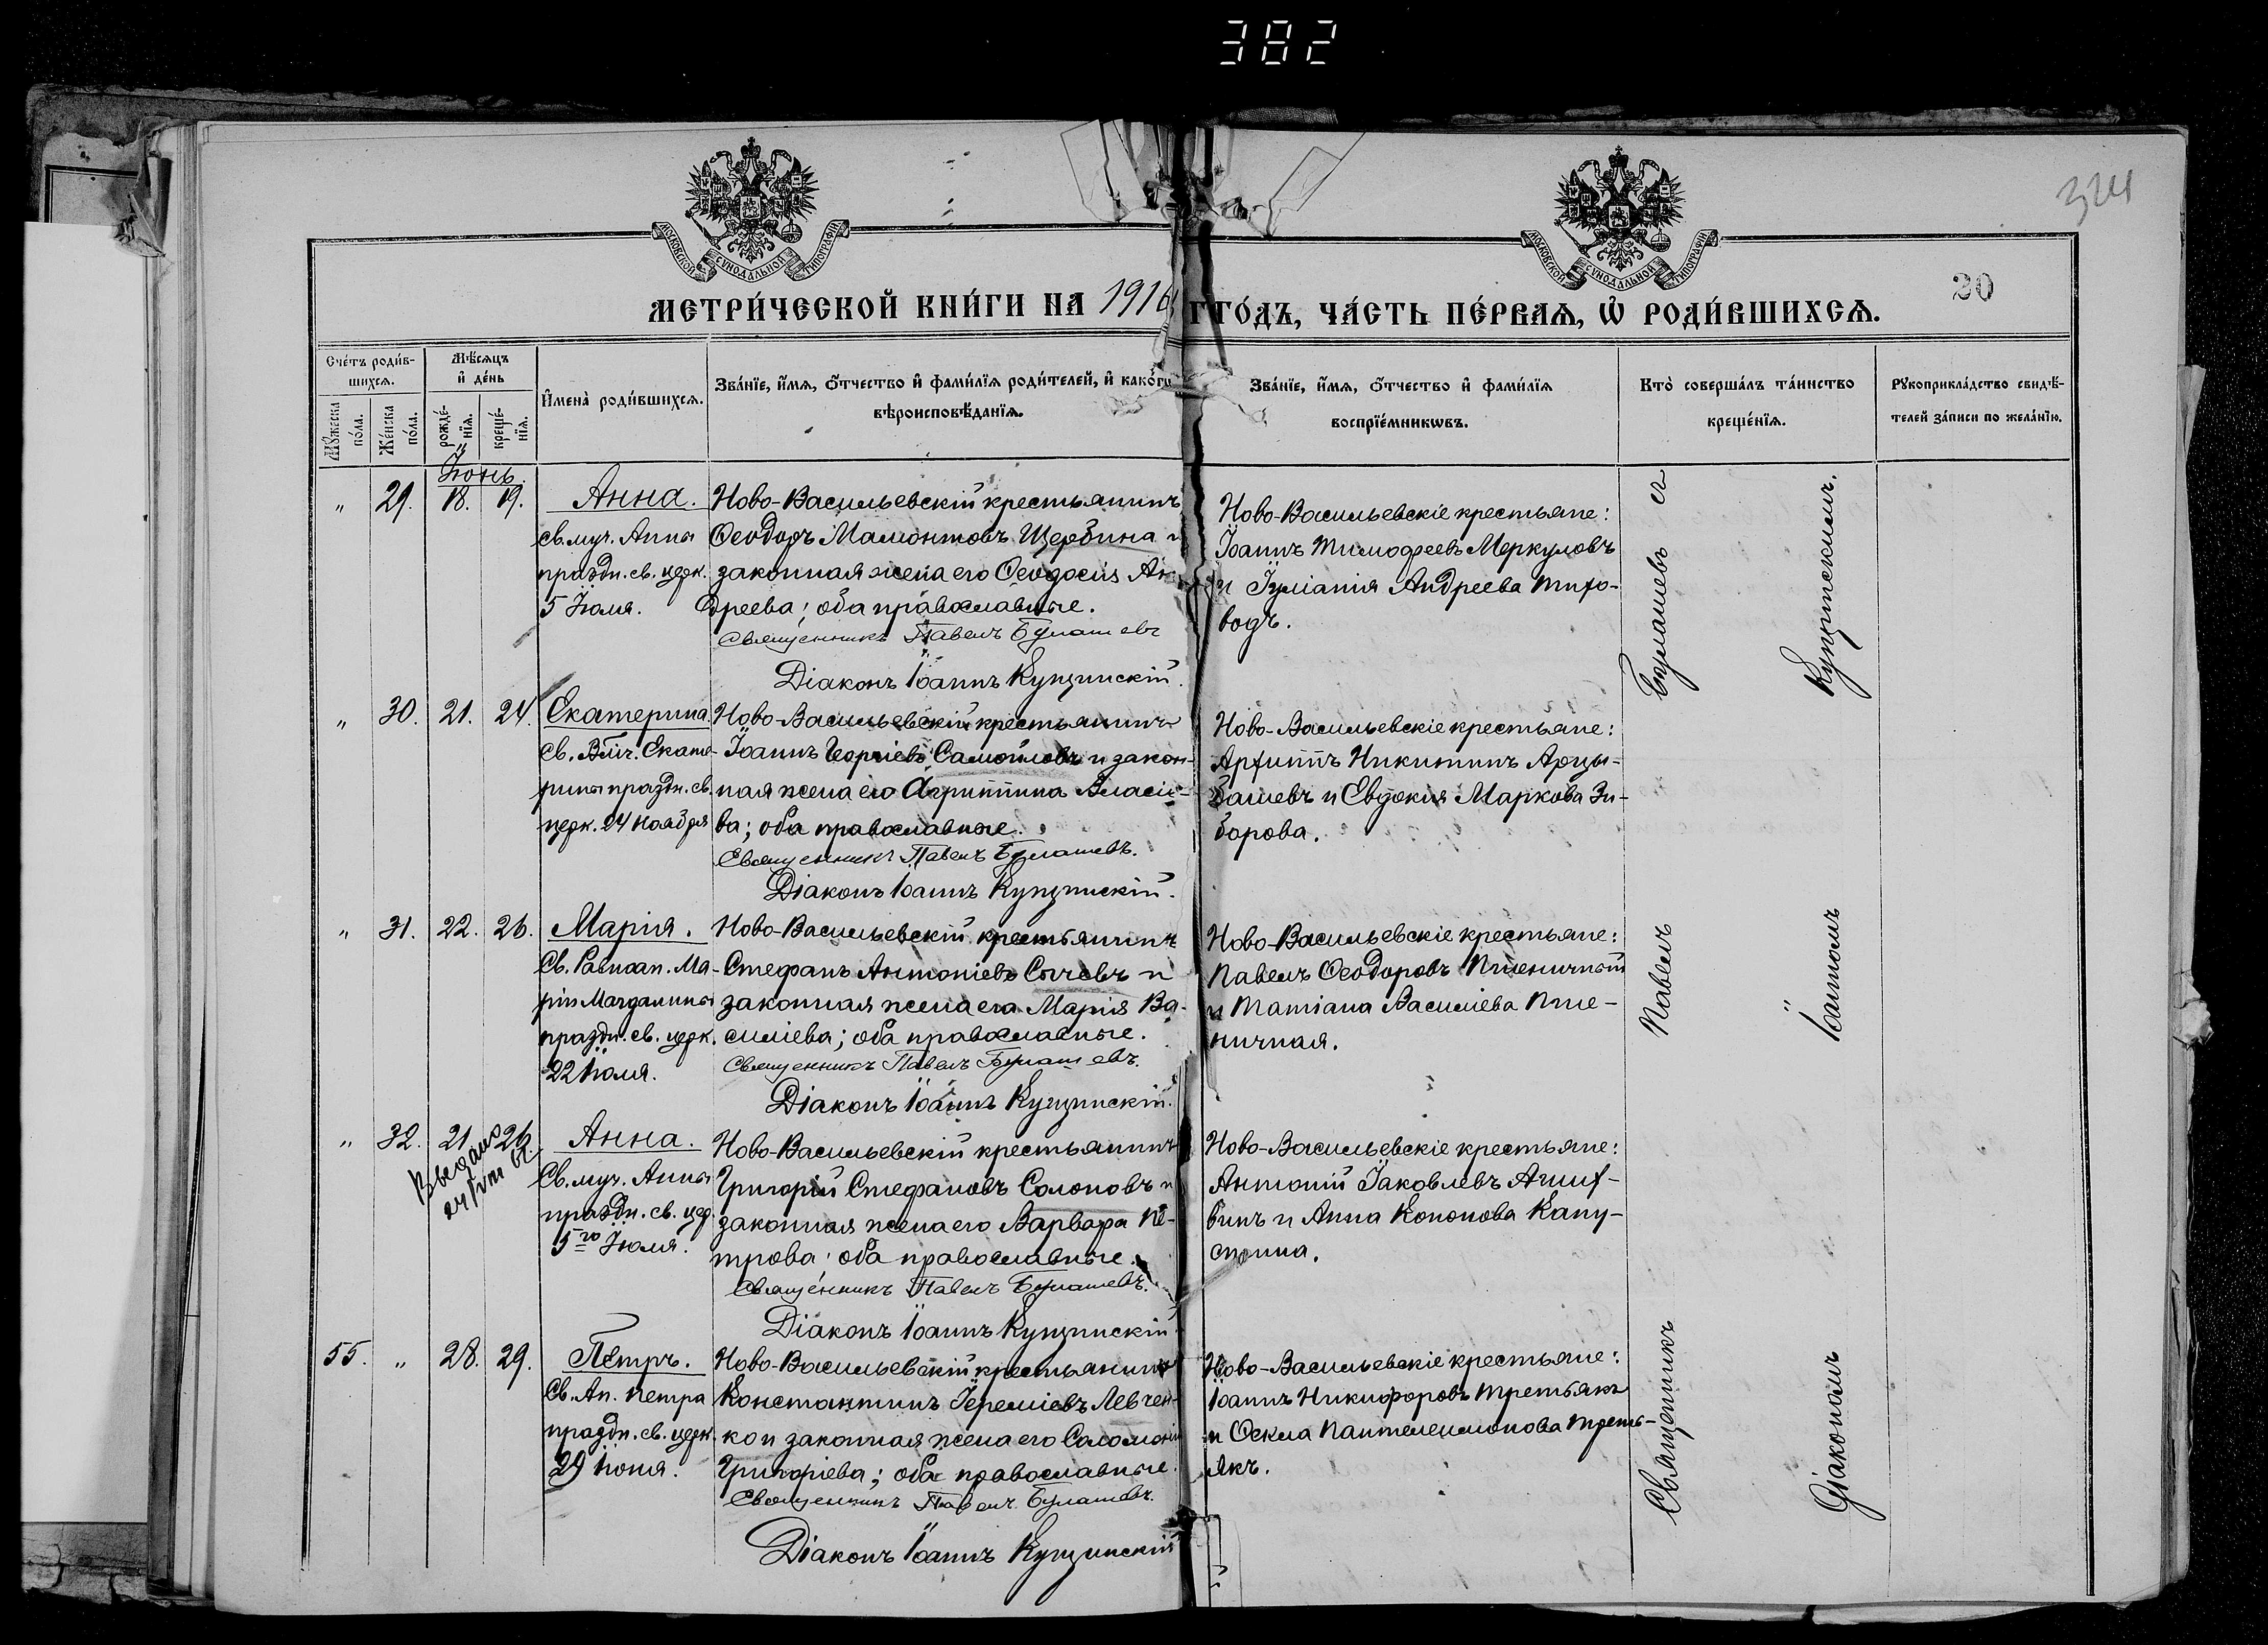 382
324
МОСКОВСКОЙ СѴНОДАЛЬНОЙ ТИПОГРАФІИ
МОСКОВСКОЙ СѴНОДАЛЬНОЙ ТИПОГРАФІИ
20
МЕТРИ́ЧЕСКОЙ КНИ́ГИ НА 1916 ГО́ДЪ, ЧА́СТЬ ПЕ́РВАЯ, Ѡ РОДИ́ВШИХСЯ.
Сче́тъ роди́в-
шихся.
Мꙋ́жеска по́ла.
Же́нска по́ла.
Мѣ́сяцъ и де́нь
рожде́-нїя.
креще́-нїя.
Имена̀ роди́вшихся.
Зва́нїе, и́мя, о́тчество и фами́лїя роди́телей, и како́гѡ
вѣроисповѣ́данїя.
Зва́нїе, и́мя, о́тчество и фами́лїя
воспрїе́мникѡвъ.
Кто̀ соверша́лъ та́инство
креще́нїя.
Рꙋкоприкла́дство свидѣ́-
телей за́писи по жела́нїю.
Іюнь.
" 29. 18. 19. Анна.
св. муч. Анны
праздн. св. церк.
5 Іюля.
Ново-Васильевскій крестьянинъ
Ѳеодоръ Мамонтовъ Щербина и
законная жена его Ѳеодосія Ан-
дреева; оба православные.
Священникъ Павелъ Булашевъ
Діаконъ Іоаннъ Купчинскій.
Ново-Васильевскіе крестьяне:
Іоаннъ Тимофеевъ Меркуловъ
и Іуліанія Андреева Тихо-
водъ.
" 30. 21. 24. Екатерина.
Св. Вмч. Екате-
рины праздн. св.
церк. 24 ноября
Ново-Васильевскій крестьянинъ
Іоаннъ Георгіевъ Самойловъ и закон-
ная жена его Агриппина Власіе-
ва; оба православные.
Священникъ Павелъ Булашевъ.
Діаконъ Іоаннъ Купчинскій.
Ново-Васильевскіе крестьяне:
Архиппъ Никитинъ Арцы-
башевъ и Евдокія Маркова Зи-
борова.
" 31. 22. 26. Марія.
Св. Равноап. Ма-
ріи Магдалины
праздн. св. церк.
22 Іюля.
Ново-Васильевскій крестьянинъ
Стефанъ Антоніевъ Сычевъ и
законная жена его Марія Ва-
силіева; оба православные.
Священникъ Павелъ Булашевъ.
Діаконъ Іоаннъ Купчинскій.
Ново-Васильевскіе крестьяне:
Павелъ Ѳеодоровъ Пшеничный
и Татіана Василіева Пше-
ничная.
" 32. 21. 26. Анна.
24/VIII
Св. муч. Анны
праздн. св. цер.
5го Іюля.
Ново-Васильевскій крестьянинъ
Григорій Стефановъ Солоповъ и
законная жена его Варвара Пе-
трова; оба православные.
Священникъ Павелъ Булашевъ.
Діаконъ Іоаннъ Купчинскій
Ново-Васильевскіе крестьяне:
Антоній Іаковлевъ
и Анна Кононова Капу-
стина.
55. " 28. 29. Петръ.
Св. Ап. Петра
праздн. св. церк.
29 Іюня.
Ново-Васильевскій крестьянинъ
Константинъ Іереміевъ Левчен-
ко и законная жена его Соломонія
Григоріева; оба православные.
Священникъ Павелъ Булашевъ.
Діаконъ Іоаннъ Купчинскій
Ново-Васильевскіе крестьяне:
Іоаннъ Никифоровъ Третьякъ
и Ѳекла Пантелеимонова Треть-
якъ.
Священникъ Павелъ Булашевъ съ
Діакономъ Іоанномъ Купчинскимъ.